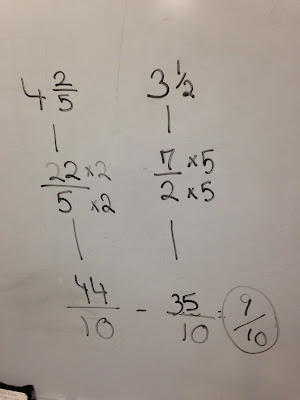 4 2/5 3 1/2
22/5 ×2 ×2 7/2 ×5 ×5
44/10 - 35/10 = 9/10